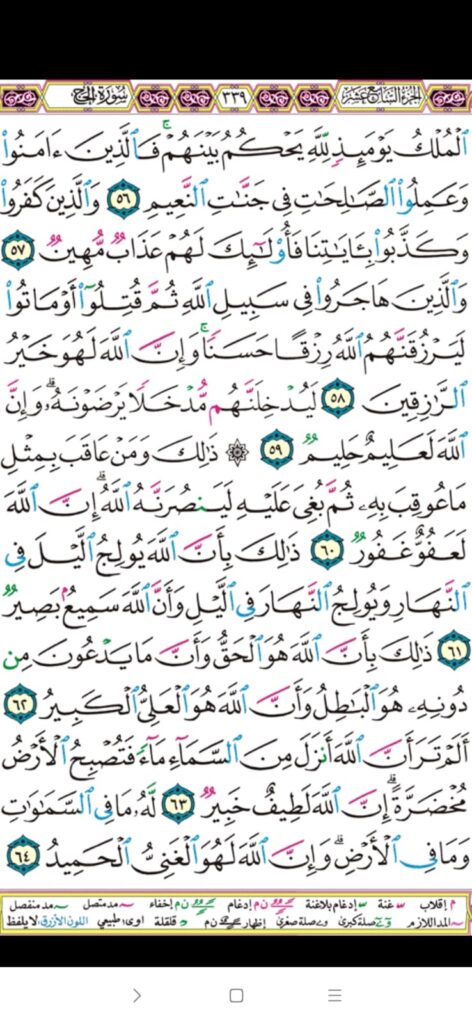 الجزء السابع عشر ٣٣٩ سورة الحج
ٱلْمُلْكُ يَوْمَئِذٍ لِّلَّهِ يَحْكُمُ بَيْنَهُمْ ۚ فَٱلَّذِينَ ءَامَنُوا۟
وَعَمِلُوا۟ ٱلصَّٰلِحَٰتِ فِى جَنَّٰتِ ٱلنَّعِيمِ ٥٦ وَٱلَّذِينَ كَفَرُوا۟
وَكَذَّبُوا۟ بِـَٔايَٰتِنَا فَأُو۟لَٰٓئِكَ لَهُمْ عَذَابٌ مُّهِينٌ ٥٧
وَٱلَّذِينَ هَاجَرُوا۟ فِى سَبِيلِ ٱللَّهِ ثُمَّ قُتِلُوٓا۟ أَوْ مَاتُوا۟
لَيَرْزُقَنَّهُمُ ٱللَّهُ رِزْقًا حَسَنًا ۚ وَإِنَّ ٱللَّهَ لَهُوَ خَيْرُ
ٱلرَّٰزِقِينَ ٥٨ لَيُدْخِلَنَّهُم مُّدْخَلًا يَرْضَوْنَهُۥ ۗ وَإِنَّ
ٱللَّهَ لَعَلِيمٌ حَلِيمٌ ٥٩ ۞ ذَٰلِكَ وَمَنْ عَاقَبَ بِمِثْلِ
مَا عُوقِبَ بِهِۦ ثُمَّ بُغِىَ عَلَيْهِ لَيَنصُرَنَّهُ ٱللَّهُ ۗ إِنَّ ٱللَّهَ
لَعَفُوٌّ غَفُورٌ ٦٠ ذَٰلِكَ بِأَنَّ ٱللَّهَ يُولِجُ ٱلَّيْلَ فِى
ٱلنَّهَارِ وَيُولِجُ ٱلنَّهَارَ فِى ٱلَّيْلِ وَأَنَّ ٱللَّهَ سَمِيعٌۢ بَصِيرٌ
٦١ ذَٰلِكَ بِأَنَّ ٱللَّهَ هُوَ ٱلْحَقُّ وَأَنَّ مَا يَدْعُونَ مِن
دُونِهِۦ هُوَ ٱلْبَٰطِلُ وَأَنَّ ٱللَّهَ هُوَ ٱلْعَلِىُّ ٱلْكَبِيرُ ٦٢
أَلَمْ تَرَ أَنَّ ٱللَّهَ أَنزَلَ مِنَ ٱلسَّمَآءِ مَآءً فَتُصْبِحُ ٱلْأَرْضُ
مُخْضَرَّةً ۗ إِنَّ ٱللَّهَ لَطِيفٌ خَبِيرٌ ٦٣ لَّهُۥ مَا فِى ٱلسَّمَٰوَٰتِ
وَمَا فِى ٱلْأَرْضِ ۗ وَإِنَّ ٱللَّهَ لَهُوَ ٱلْغَنِىُّ ٱلْحَمِيدُ ٦٤
م إقلاب غنة إدغام بلاغنة ن م إدغام ن م إخفاء مد متصل مد منفصل
المد اللازم صلة كبرى صلة صغرى إظهار ن م قلقلة اوى: طبيعي اللون الأزرق: لا يلفظ